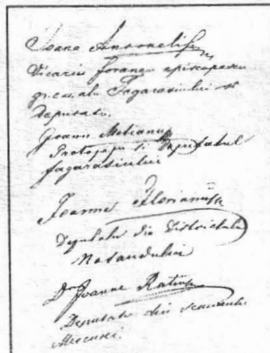 Ioane Antonelli
Vicariu foraneu episcopescu
gr. c. alu Fagarasiului si
deputatu.
Ioann Metianu
Protopopu si Deputatul
fagarasiului
Ioanne Florianu
Deputatu din Districtulu
Naseudului
Dr Ioanne Ratiu
Deputatu din scaunulu